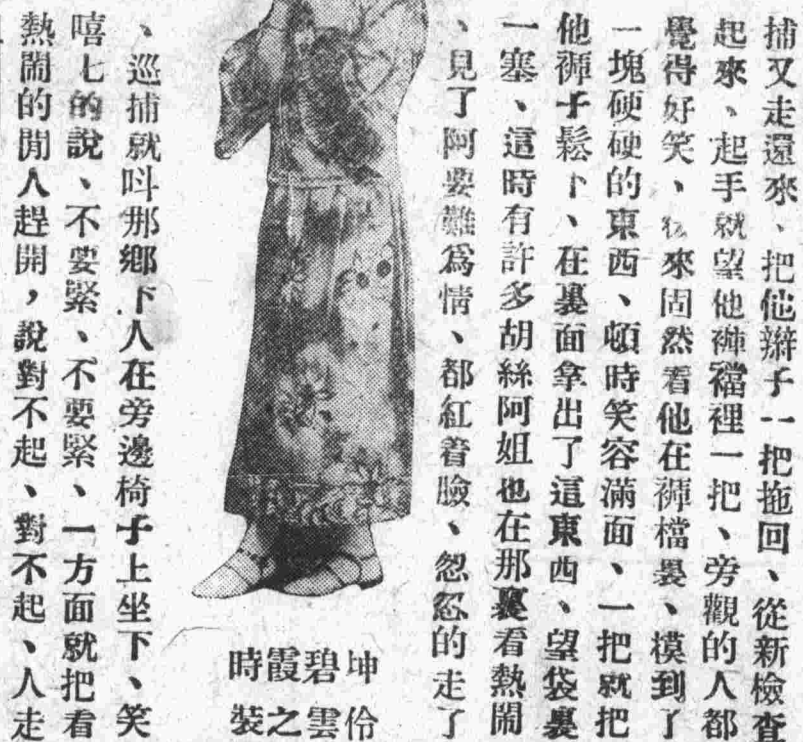 捕又走還來、把他辮子一把拖回、從新檢查
起來、起手就望他褲襠裡一把、旁觀的人都
覺得好笑、後來固然看他在褲檔裏、模到了
一塊硬硬的東西、頓時笑容滿面、一把就把
他褲子鬆下、在裏面拿出了這東西、望袋裏
一塞、這時有許多胡絲阿姐也在那裏看熱鬧
、見了阿要難爲情、都紅着臉、忽忽的走了
坤伶
碧雲
霞之
時裝
、巡捕就呌那鄉下人在旁邊椅子上坐下、笑
嘻七的說、不要緊、不要緊、一方面就把看
熱鬧的閒人趕開，說對不起、對不起、人走